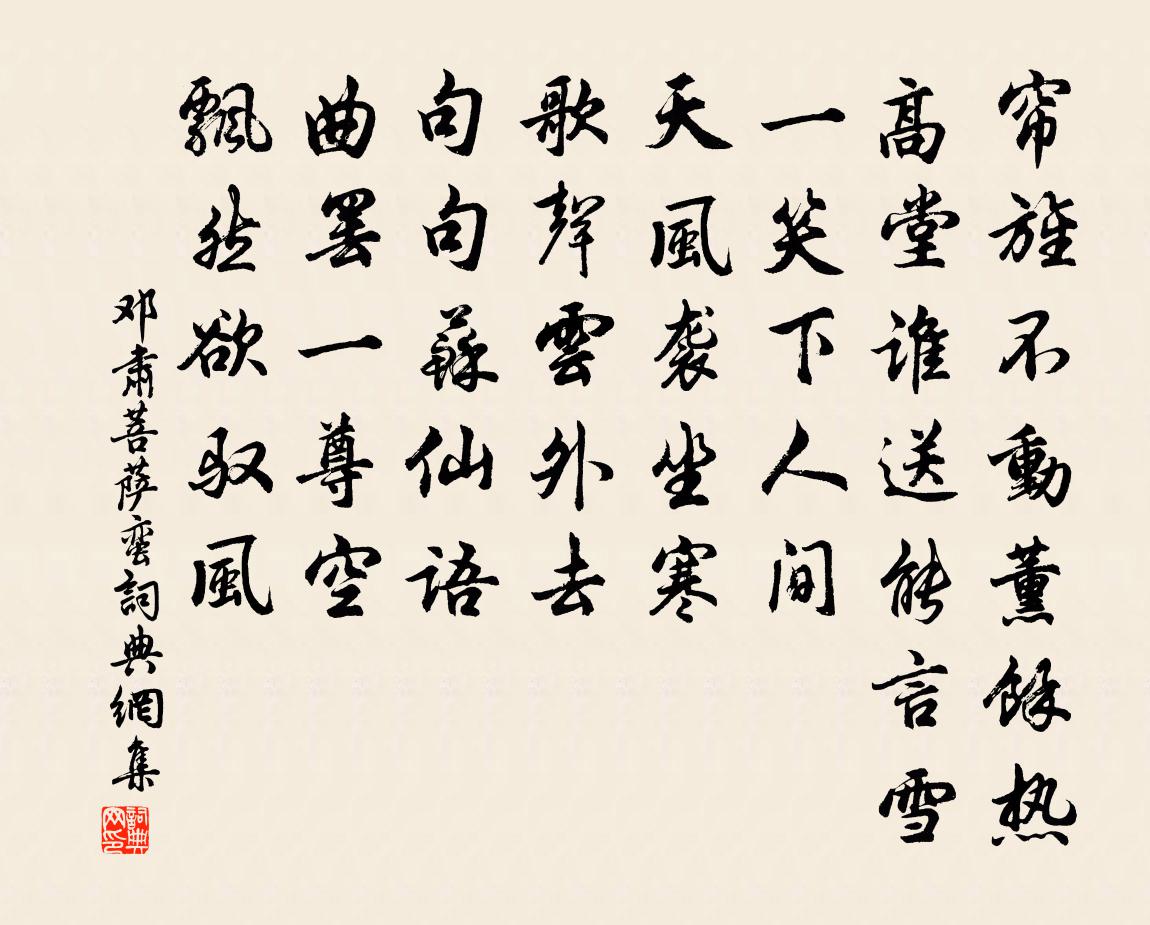 帘旌不動薰餘热
高堂谁送能言雪
一笑下人间
天風袭坐寒
歌聲雲外去
句句蘇仙语
曲罢一尊空
飄然欲驭風
邓肃菩萨蛮詞典網集
詞典网印